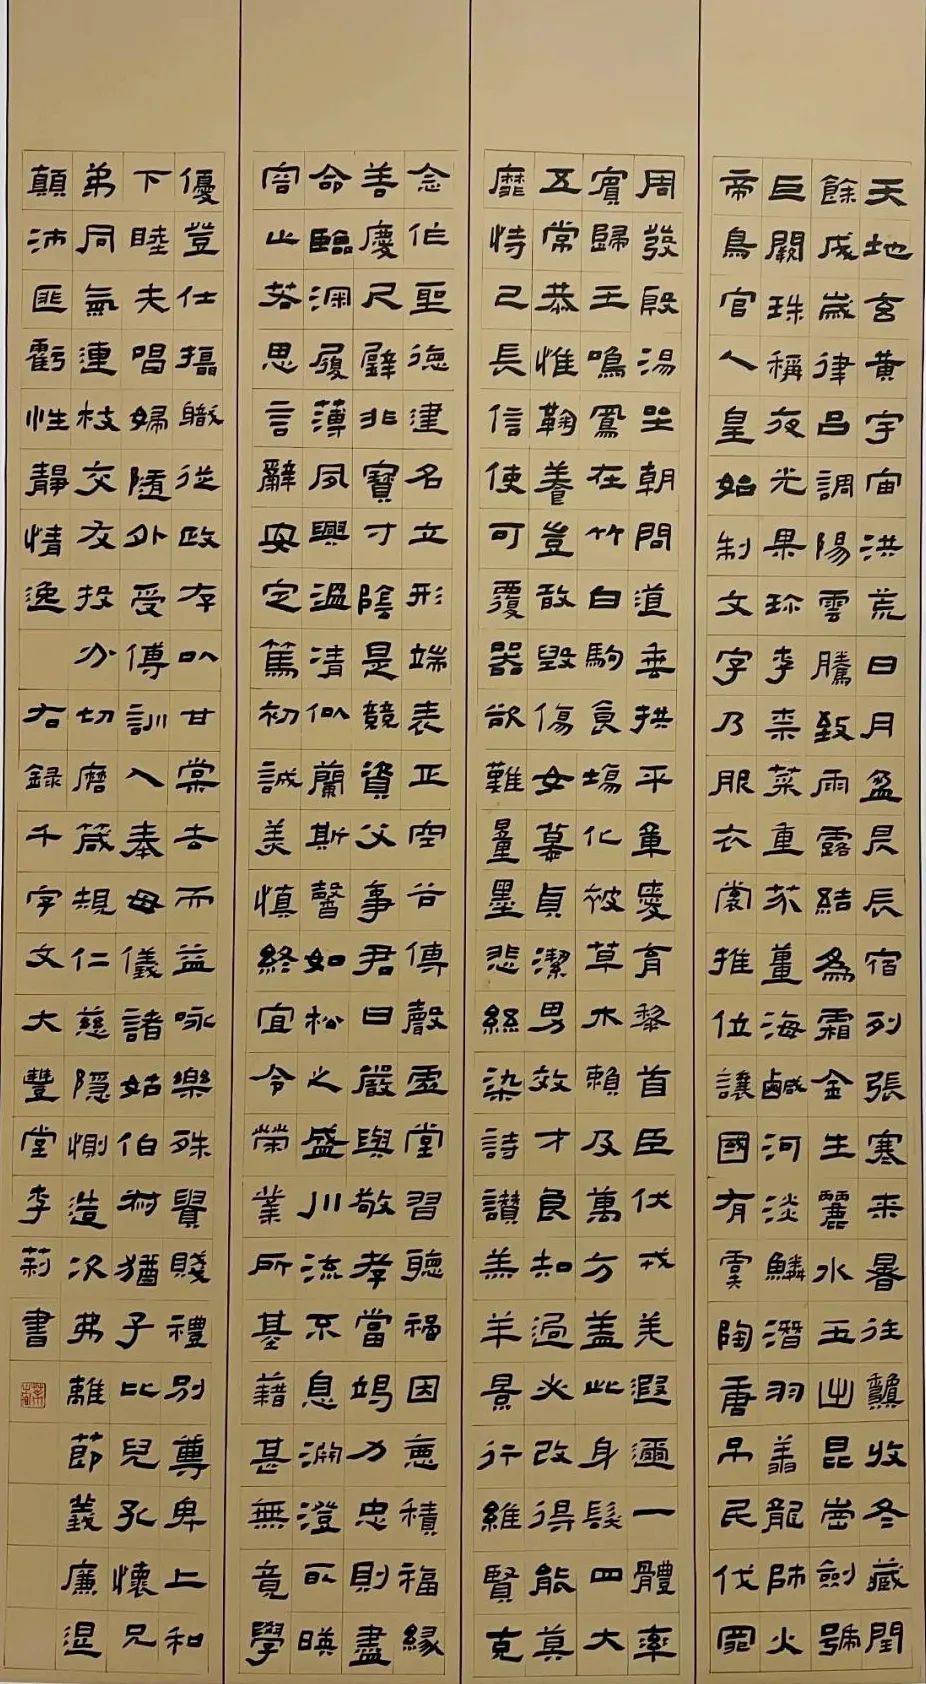 天地玄黃宇宙洪荒日月盈昃辰宿列張寒来暑往龝收冬藏閏
餘成歲律呂調陽雲騰致雨露結為霜金生麗水玉出昆崗劍號
巨闕珠稱夜光果珍李柰菜重芥薑海鹹河淡鱗潛羽翔龍師火
帝鳥官人皇始制文字乃服衣裳推位讓國有虞陶唐弔民伐罪
周發殷湯坐朝問道垂拱平章愛育黎首臣伏戎羌遐邇一體率
賓歸王鳴鳳在竹白駒食場化被草木賴及萬方蓋此身髮四大
五常恭惟鞠養豈敢毀傷女慕貞潔男效才良知過必改得能莫
靡恃己長信使可覆器欲難量墨悲絲染詩讃羔羊景行維賢克
念作聖德建名立形端表正空谷傳聲虛堂習聽禍因惡積福緣
善慶尺璧非寶寸陰是競資父事君曰嚴與敬孝當竭力忠則盡
命臨深履薄夙興溫凊似蘭斯馨如松之盛川流不息淵澄取暎
容止若思言辭安定篤初誠美慎終宜令榮業所基藉甚無竟學
優登仕攝職從政存以甘棠去而益咏樂殊貴賤禮別尊卑上和
下睦夫唱婦隨外受傅訓入奉母儀諸姑伯叔猶子比兒孔懷兄
弟同氣連枝交友投分切磨箴規仁慈隱惻造次弗離節義廉退
顛沛匪虧性靜情逸 右錄千字文大豐堂李莉書